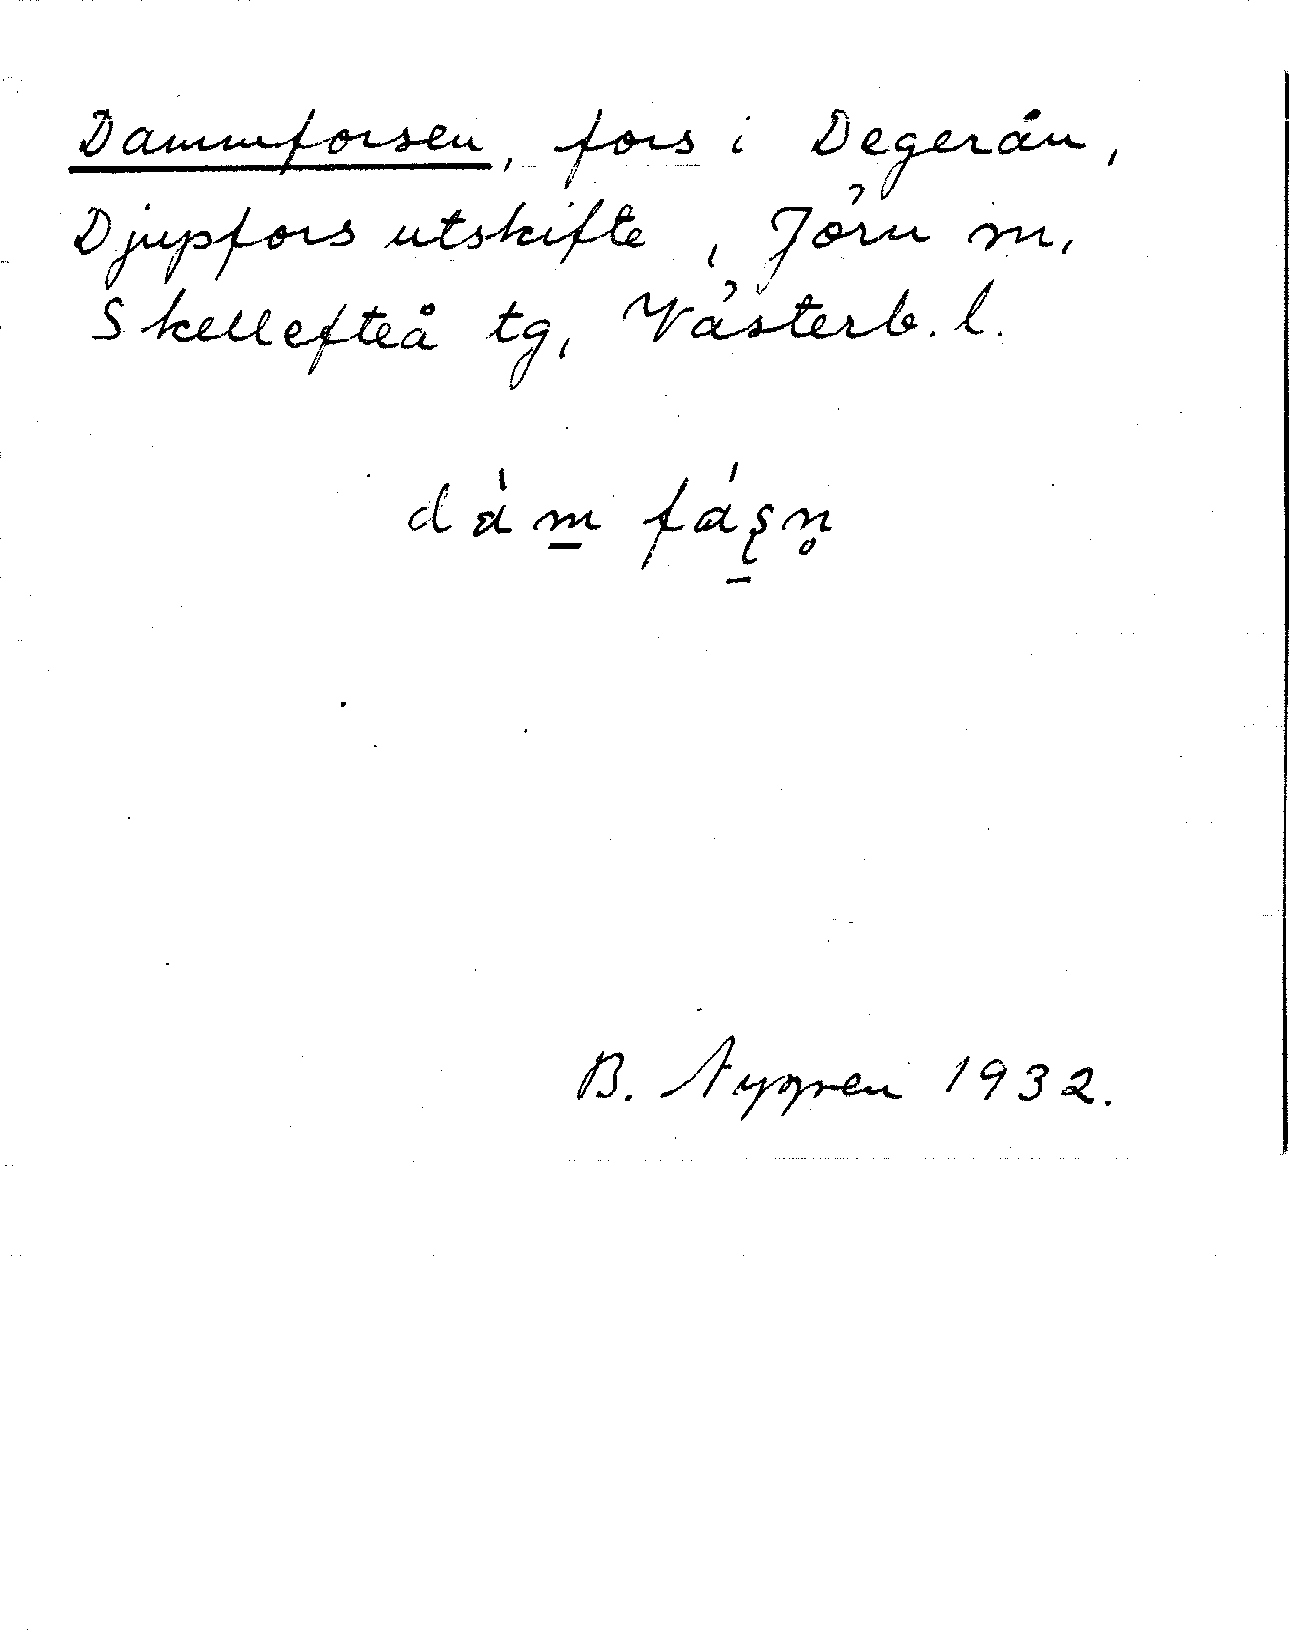 Dammforsen, fors i Degerån,
Djupfors utskifte, Jörn m,
Skellefteå tg, Västerb. l.
dám̲ fáʂ̲n̥
B. Nygren 1932.